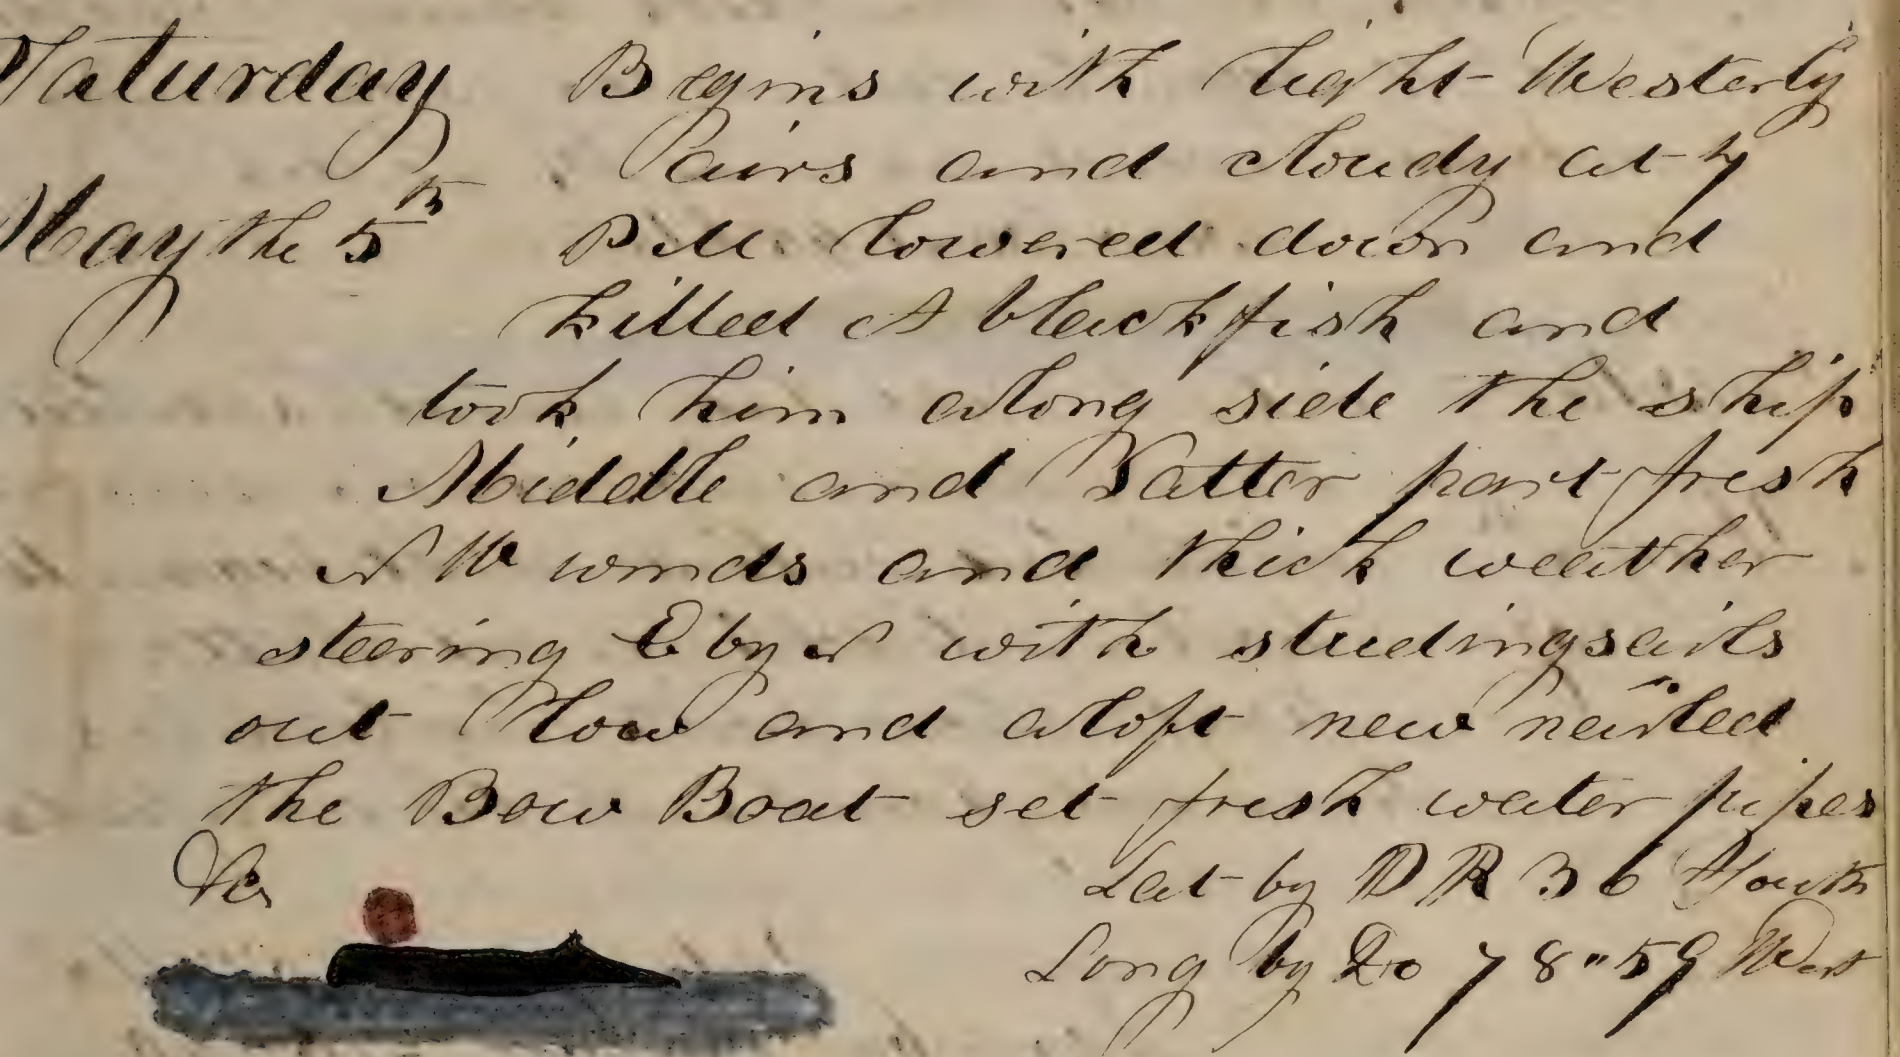 Saturday Begins with light Westerly
airs and cloudy at 7
May the 5th P.M. lowered down and
killed A blackfish and
took him along side the ship
Middle and Latter part fresh
N W winds and thick weather
steering E by N with studingsails
out low and aloft new neiled
the Bow Boat set fresh water pipes
&c Lat by D R 36 South
Long by Do 78"59 West